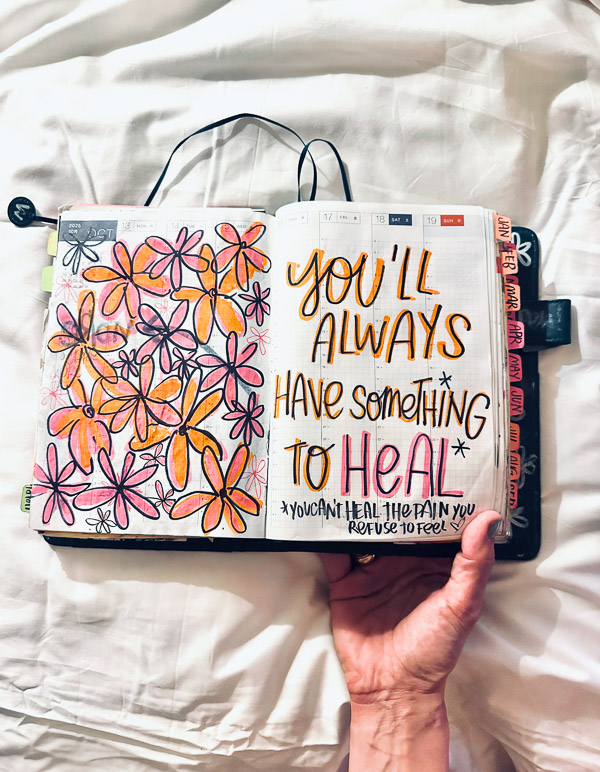 2025
OCT
13 MON
17 FRI
18 SAT
19 SUN
YOU'LL
ALWAYS
HAVE SOMETHING*
TO HEAL*
*YOU CANT HEAL THE PAIN YOU
REFUSE TO FEEL
JAN
FEB
MAR
APR
MAY
JUN